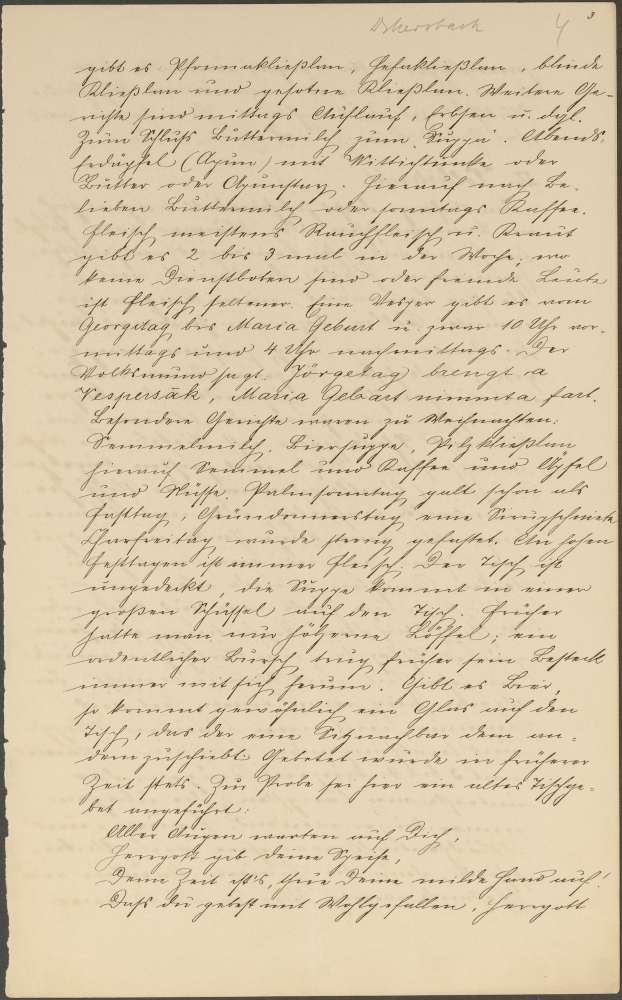 3
4
gibt es Pfannakließlan, Hefakließlan, blinde
Kließlan und gesotne Kließlan. Weitere Ge-
richte sind mittags Auflauf, Erbsen u. dgl.
Zum Schluß Buttermilch zum "Suppa". Abends
Erdäpfel (Apun) mit Wittichtunke oder
Butter oder Apunstarz. Hierauf nach Be-
lieben Buttermilch oder sonntags Kaffee.
Fleisch, meistens Rauchfleisch u. Kraut
gibt es 2 bis 3 mal in der Woche; wo
keine Dienstboten sind oder fremde Leute
ist Fleisch seltener. Eine Vesper gibt es vom
Georgetag bis Maria Geburt u. zwar 10 Uhr vor-
mittags und 4 Uhr nachmittags. Der
Volksmund sagt: Jörgetag brengt a
Vespersak, Maria Gebart nimmta fart.
Besondere Gerichte waren zu Weihnachten:
Semmelmilch, Biersuppe, Pilzkließlan
hierauf Semmel und Kaffee und Äpfel
und Nüsse. Palmsonntag galt schon als
Fasttag, Gründonnerstag eine Sirupschniete
Karfreitag wurde streng gefastet. An hohen
Festtagen ist immer Fleisch. Der Tisch ist
ungedeckt, die Suppe kommt in einer
großen Schüssel auf den Tisch. Früher
hatte man nur hölzerne Löffel; ein
ordentlicher Bursch trug früher sein Besteck
immer mit sich herum. Gibt es Bier,
so kommt gewöhnlich ein Glas auf den
Tisch, das der eine Sitznachbar dem an-
dern zuschiebt. Gebetet wurde in früherer
Zeit stets. Zur Probe sei hier ein altes Tischge-
bet angeführt:
Aller Augen warten auf Dich,
Herrgott gib deine Speise,
Denn Zeit ist's, thue Deine milde Hand auf!
Daß du gebest mit Wohlgefallen, Herrgott